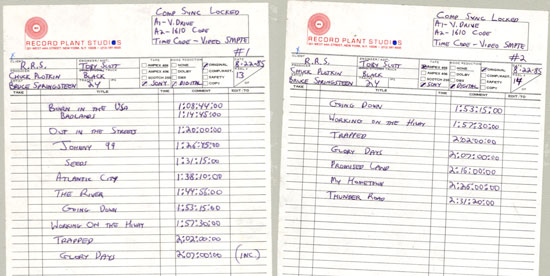 Comp Sync Locked
A1-V.Drive
A2-1610 Code
Time Code - Video SMPTE
RECORD PLANT STUDIOS
#1
R.R.S.
Toby Scott
ORIGINAL
8-22-85
Chuck Plotkin
Black
DOLBY
13
Bruce Springsteen
24
Sony
Digital
COPY
TAKE
TITLE
TIME
COMMENT
EDIT-TO
Born in the USA 1:08:44:00
Badlands 1:14:45:00
Out in the Streets 1:20:00:00
Johnny 99 1:26:45:00
Seeds 1:31:15:00
Atlantic City 1:38:10:00
The River 1:44:56:00
Going Down 1:53:15:00
Working on the Hiway 1:57:30:00
Trapped 2:02:00:00
Glory Days 2:07:00:00 (INC.)
Comp Sync Locked
A1-V.Drive
A2-1610 Code
Time Code - Video SMPTE
RECORD PLANT STUDIOS
#2
R.R.S.
Toby Scott
ORIGINAL
8-22-85
Chuck Plotkin
Black
DOLBY
14
Bruce Springsteen
24
Sony
Digital
COPY
TAKE
TITLE
TIME
COMMENT
EDIT-TO
Going Down 1:53:15:00
Working on the Hiway 1:57:30:00
Trapped 2:02:00:00
Glory Days 2:07:00:00
Promised Land 2:15:00:00
My Hometown 2:26:00:00
Thunder Road 2:31:20:00